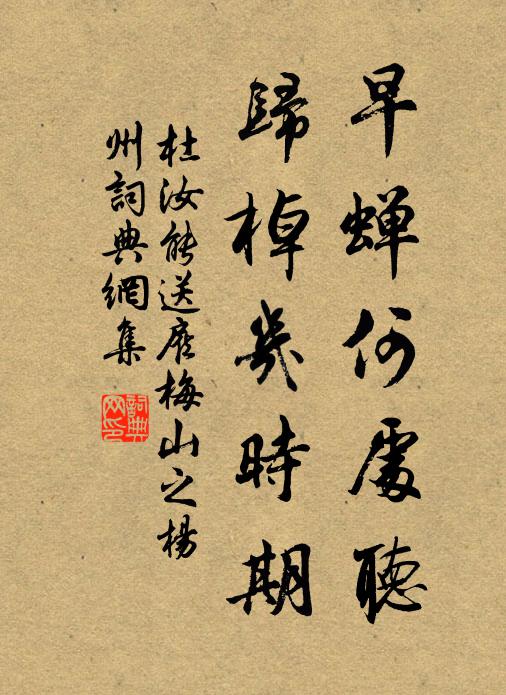 早蝉何處聽
歸棹幾時期
杜汝能送應梅山之楊
州詞典網集
詞典
网印